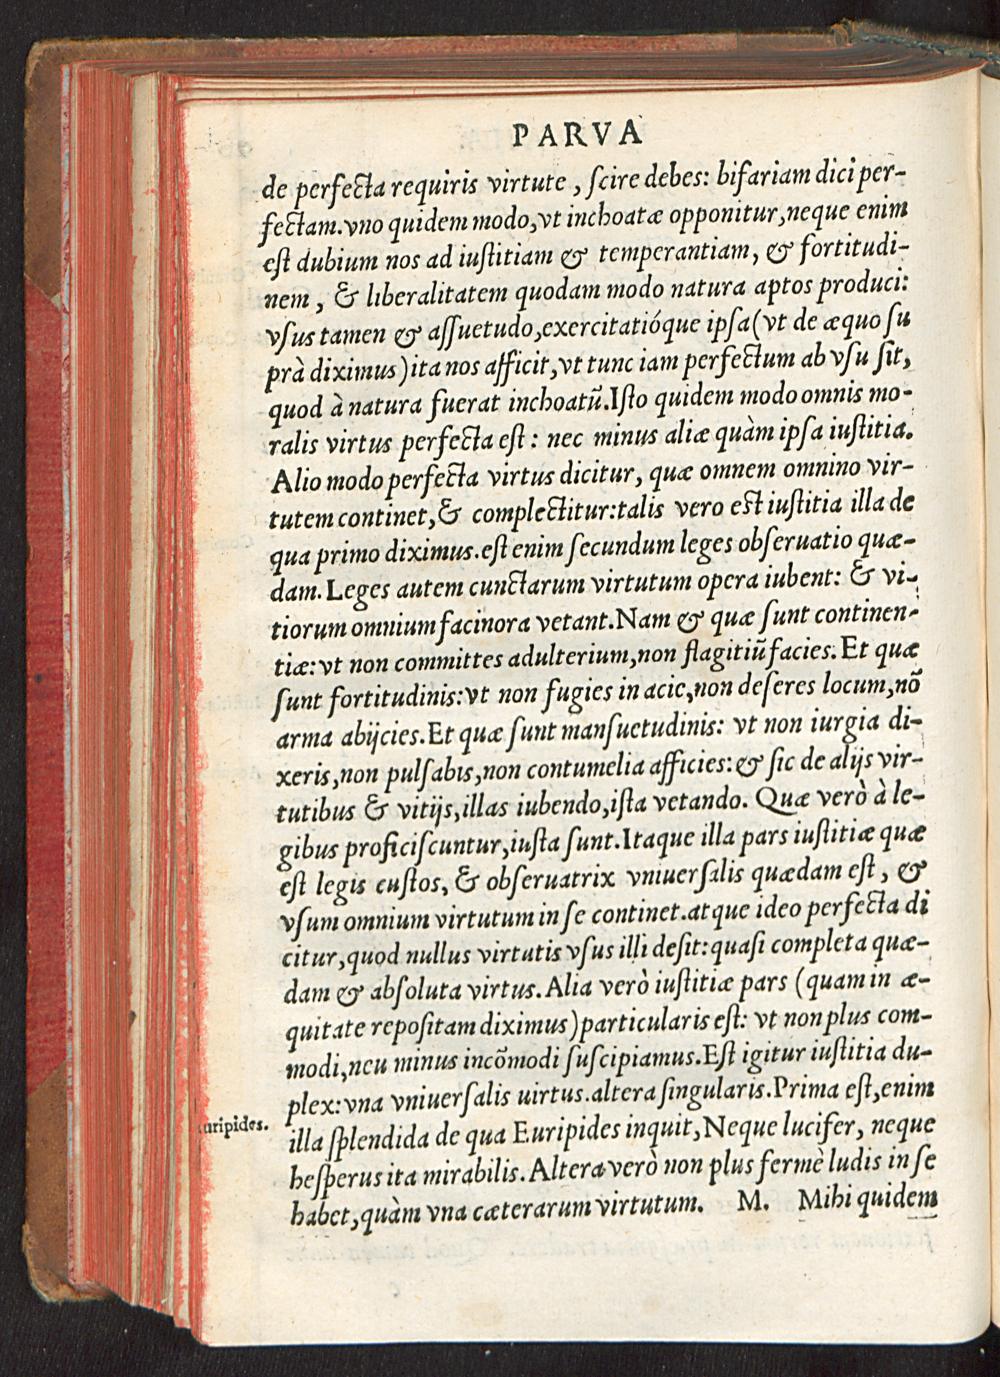 PARVA
de perfecta requiris virtute, ſcire debes: bifariam dici per-
fectam. vno quidem modo, vt inchoatæ opponitur, neque enim
eſt dubium nos ad iuſtitiam & temperantiam, & fortitudi-
nem, & liberalitatem quodam modo natura aptos produci:
vſus tamen & aſſuetudo, exercitatióque ipſa (vt de æquo ſu
prà diximus) ita nos afficit, vt tunc iam perfectum ab vſu ſit,
quod à natura fuerat inchoatũ. Iſto quidem modo omnis mo-
ralis virtus perfecta eſt: nec minus aliæ quàm ipſa iuſtitia.
Alio modo perfecta virtus dicitur, quæ omnem omnino vir-
tutem continet, & complectitur: talis vero eſt iuſtitia illa de
qua primo diximus. eſt enim ſecundum leges obſeruatio quæ-
dam. Leges autem cunctarum virtutum opera iubent: & vi-
tiorum omnium facinora vetant. Nam & quæ ſunt continen-
tiæ: vt non committes adulterium, non flagitiũ facies. Et quæ
ſunt fortitudinis: vt non fugies in acie, non deſeres locum, nõ
arma abijcies. Et quæ ſunt manſuetudinis: vt non iurgia di-
xeris, non pulſabis, non contumelia afficies: & ſic de alijs vir-
tutibus & vitijs, illas iubendo, iſta vetando. Quæ verò à le-
gibus proficiſcuntur, iuſta ſunt. Itaque illa pars iuſtitiæ quæ
eſt legis cuſtos, & obſeruatrix vniuerſalis quædam eſt, &
vſum omnium virtutum in ſe continet. atque ideo perfecta di
citur, quod nullus virtutis vſus illi deſit: quaſi completa quæ-
dam & abſoluta virtus. Alia verò iuſtitiæ pars (quam in æ-
quitate repoſitam diximus) particularis eſt: vt non plus com-
modi, neu minus incõmodi ſuſcipiamus. Eſt igitur iuſtitia du-
plex: vna vniuerſalis uirtus. altera ſingularis. Prima eſt, enim
uripides.
illa ſplendida de qua Euripides inquit, Neque lucifer, neque
heſperus ita mirabilis. Altera verò non plus fermè ludis in ſe
habet, quàm vna cæterarum virtutum. M. Mihi quidem